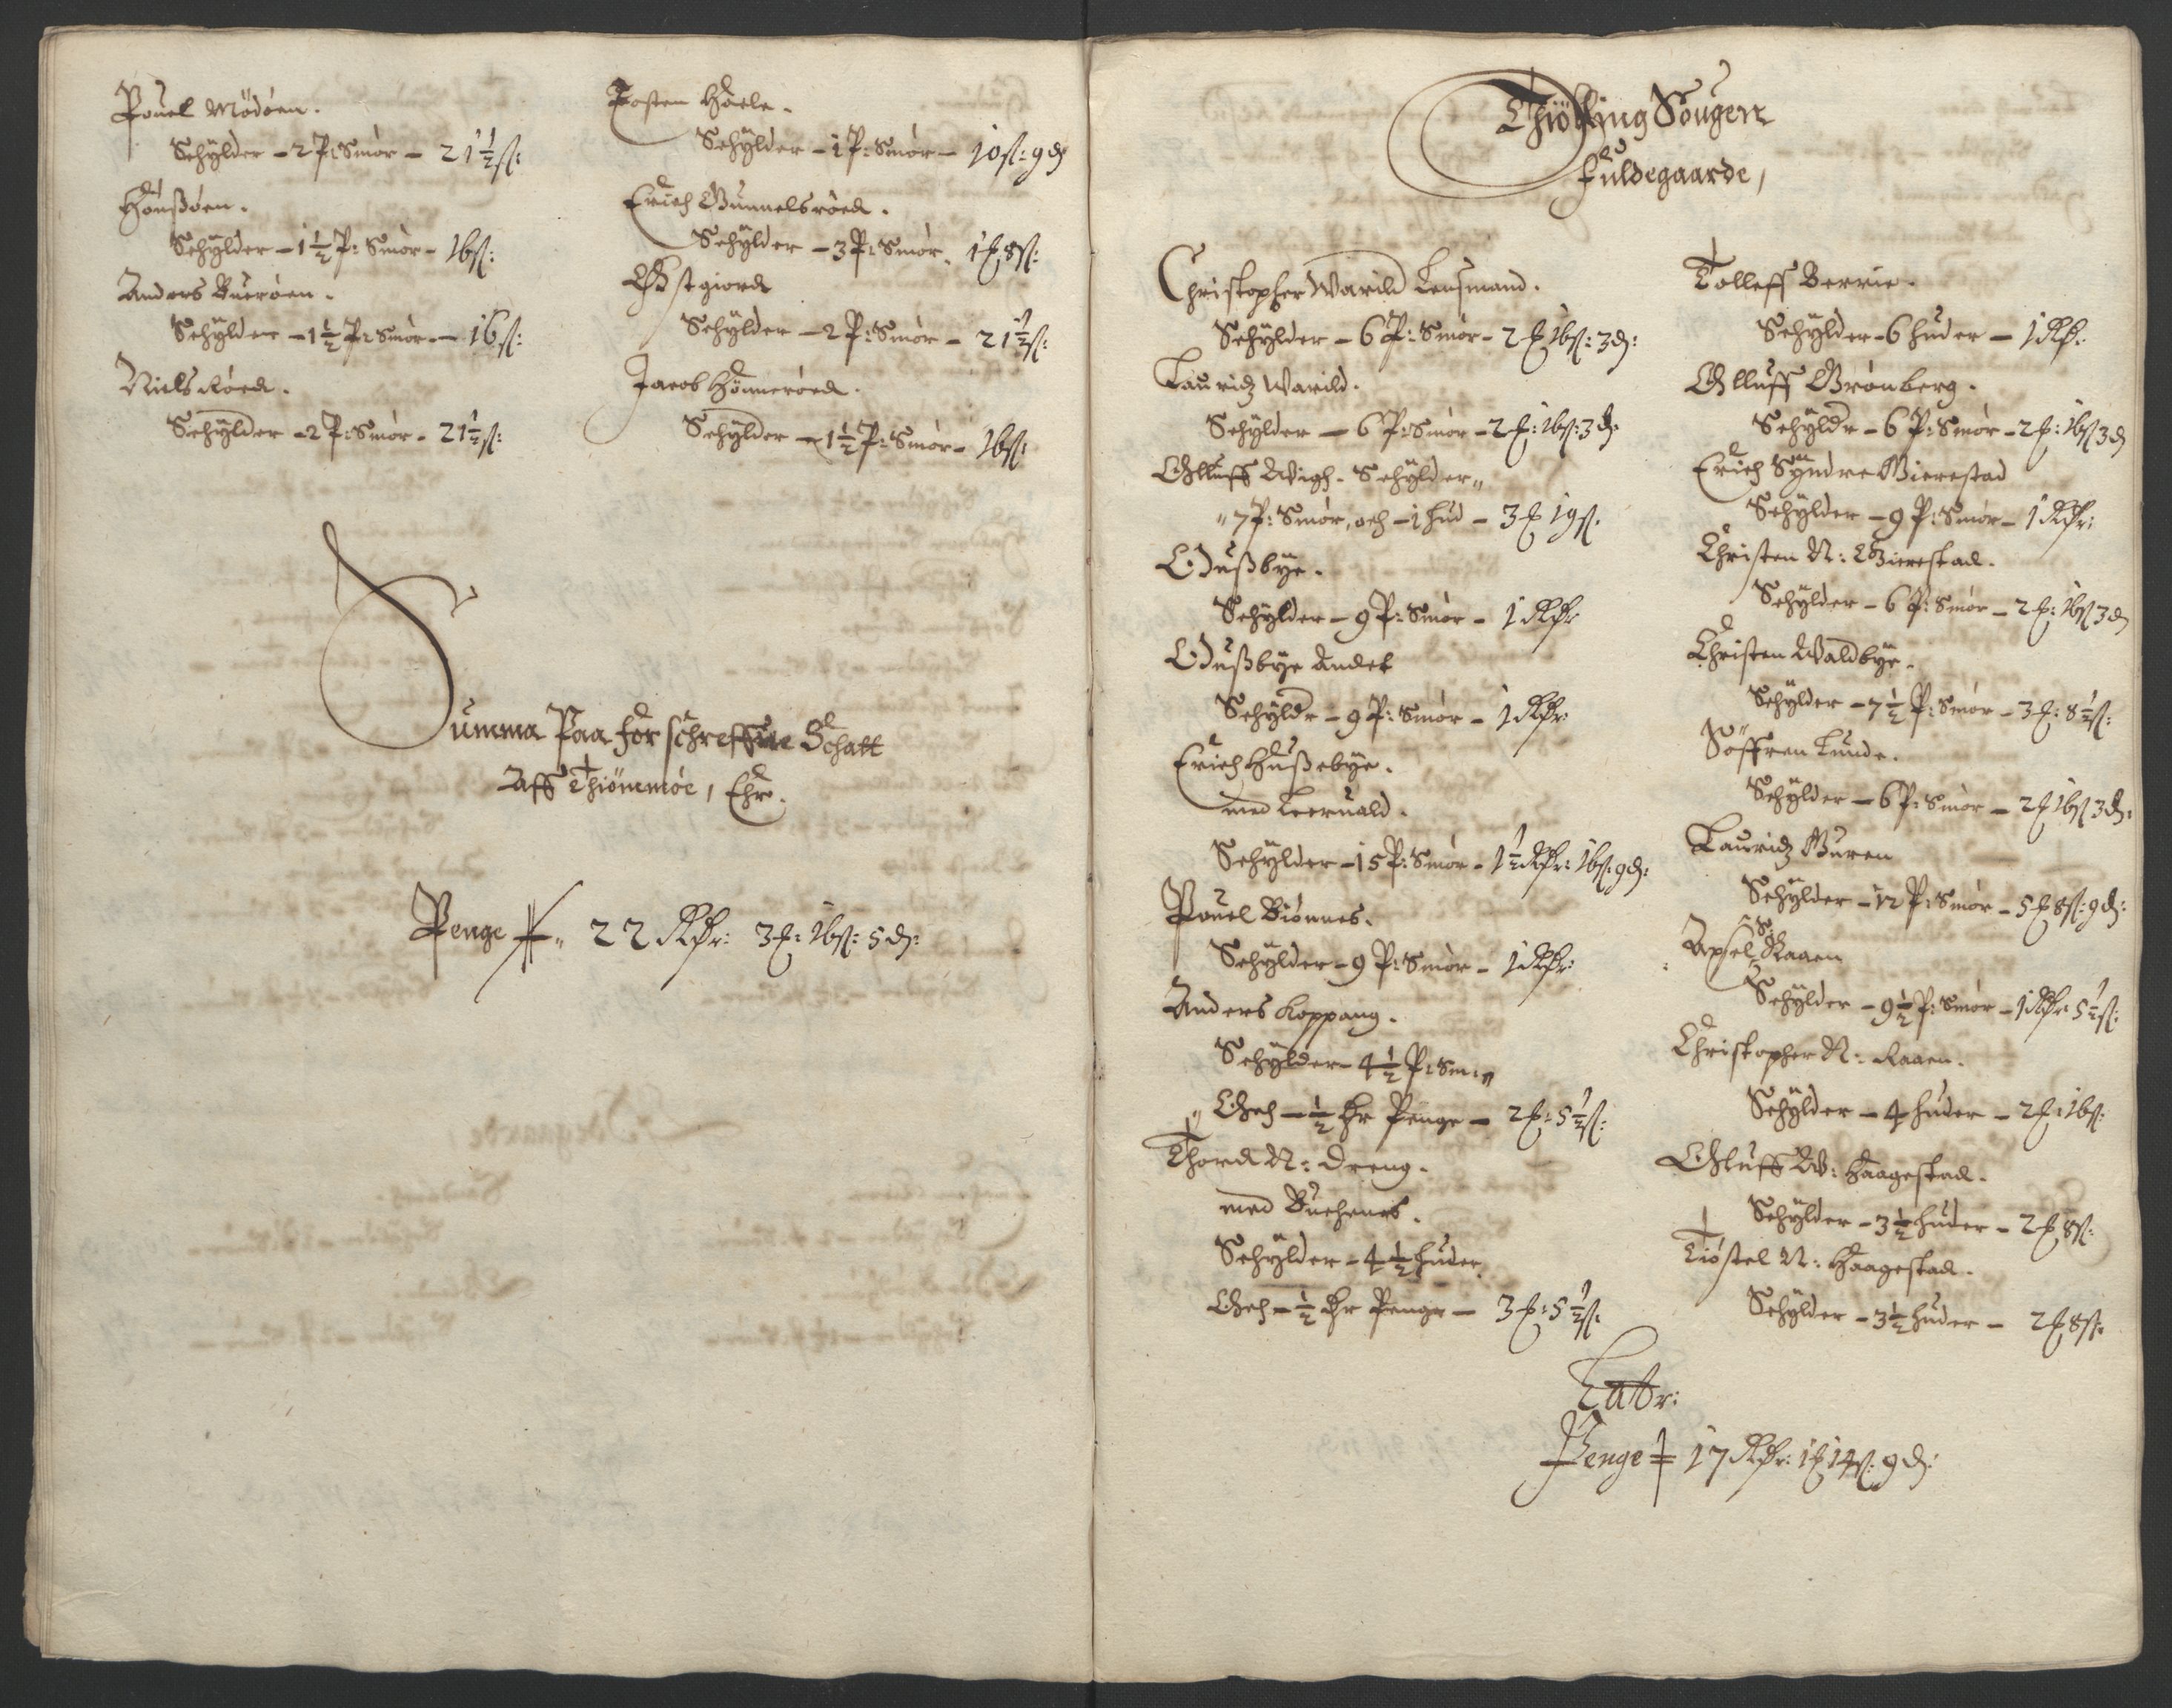 Pouel Mødøen.
Schylder – 2 P: Smør – 21½ ß:
Hønsøen.
Schylder – 1½ P: Smør – 16 ß:
Anders Buerøen.
Schylder – 1½ P: Smør – 16 ß:
Niels Røed.
Schylder – 2 P: Smør – 21½ ß:
Tosten Hoele.
Schylder – 1 P: Smør – 10 ß: 9 d
Erich Gunnelsrøed.
Schylder – 3 P: Smør – 1 ℔ 8 ß:
Østgiord
Schylder – 2 P: Smør – 21½ ß:
Jacob Hønnerøed.
Schylder – 1½ P: Smør – 16 ß:
Summa Paa forschreffne Schatt
Aff Thiømmøe, Ehr.
Penge 22 Rdr: 3 ℔: 16 ß: 5 d:
Thiølling Sougen
Fuldegaarde,
Christopher Warild Lensmand.
Schylder – 6 P: Smør – 2 ℔ 16 ß: 3 d:
Lauridz Warild.
Schylder – 6 P: Smør – 2 ℔: 16 ß: 3 d:
Olluff Wigh. Schylder„
„7 P: Smør, och – 1 hud – 3 ℔ 19 ß.
Hußbye.
Schylder – 9 P: Smør – 1 Rdr
Hußbye Andet
Schyldr – 9 P: Smør – 1 Rdr:
Erich Hußebye.
med Leeruald.
Schylder – 15 P: Smør – 1½ Rdr: 16 ß: 9 d:
Pouel Biønnes.
Schylder – 9 P: Smør – 1 Rdr:
Anders Koppang.
Schylder – 4½ P: Sm:„
„ Och – ½ hr Penge – 2 ℔: 5½ ß:
Thord N: Dreng.
med Buchenes.
Schylder – 4½ huder
Och – ½ hr Penge – 3 ℔: 5½ ß:
Tolleff Berrie.
Schylder – 6 huder – 1 Rdr:
Olluff Grønberg.
Schyldr – 6 P: Smør – 2 ℔: 16 ß 3 d
Erich Syndre Gierestad
Schylder – 9 P: Smør – 1 Rdr:
Christen N: Gierestad.
Schylder – 6 P: Smør – 2 ℔: 16 ß 3 d
Christen Waldbye.
Schylder – 7½ P: Smør – 3 ℔: 8½ ß:
Søffren Lunde.
Schylder – 6 P: Smør – 2 ℔ 16 ß 3 d:
Lauridz Guren
Schylder – 12 P: Smør – 5 ℔ 8 ß: 9 d:
Axsel S: Raaen
Schylder – 9½ P: Smør – 1 Rdr 5½ ß:
Christopher N: Raaen.
Schylder – 4 huder – 2 ℔: 16 ß:
Oluff W: Haagestad.
Schylder – 3½ huder – 2 ℔ 8 ß:
Kiøstel N: Haagestad.
Schylder – 3½ huder – 2 ℔ 8 ß:
Latr:
Penge 17 Rdr: 1 ℔ 14 ß: 9 d: